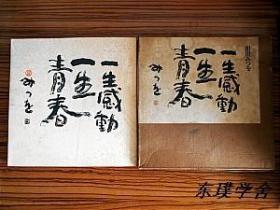 一生感動
一生青春
みつを
一生感動
一生青春
みつを
东璞学舍